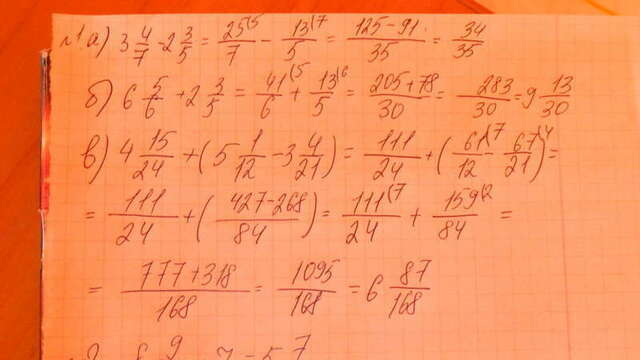 №1 а) 3 4/7 - 2 3/5 = 25(5/7 - 13(7/5 = 125-91/35 = 34/35
б) 6 5/6 + 2 3/5 = 41(5/6 + 13(6/5 = 205+78/30 = 283/30 = 9 13/30
в) 4 15/24 + (5 1/12 - 3 4/21) = 111/24 + (61(7/12 - 67(4/21) =
= 111/24 + (427-268/84) = 111(7/24 + 159(2/84 =
= 777+318/168 = 1095/168 = 6 87/168